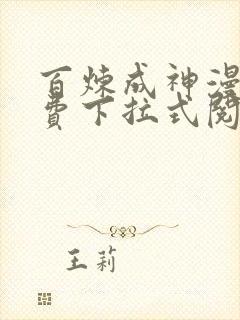 百炼成神漫
费下拉式阅
王莉